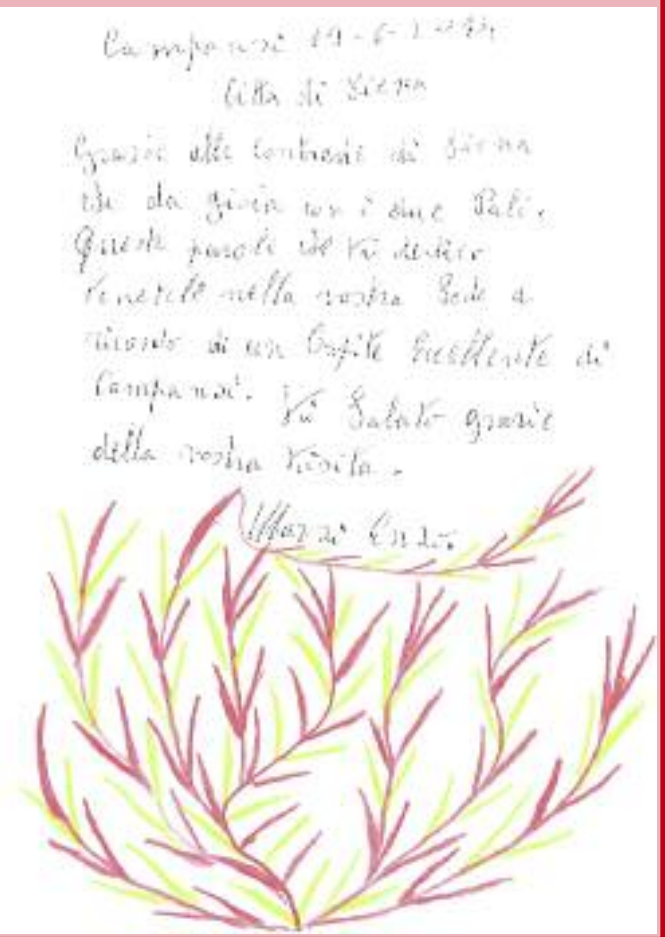 Campansi 19-6-2024
Citta di Siena
Grazie alle Contrade di Siena
che da gioia con i sue Pali.
Queste parole vi dedico
tenetele nella vostra Sede a
ricordo di un Ospite Eccellente di
Campansi. Vi Saluto grazie
della vostra Visita.
Enzo.